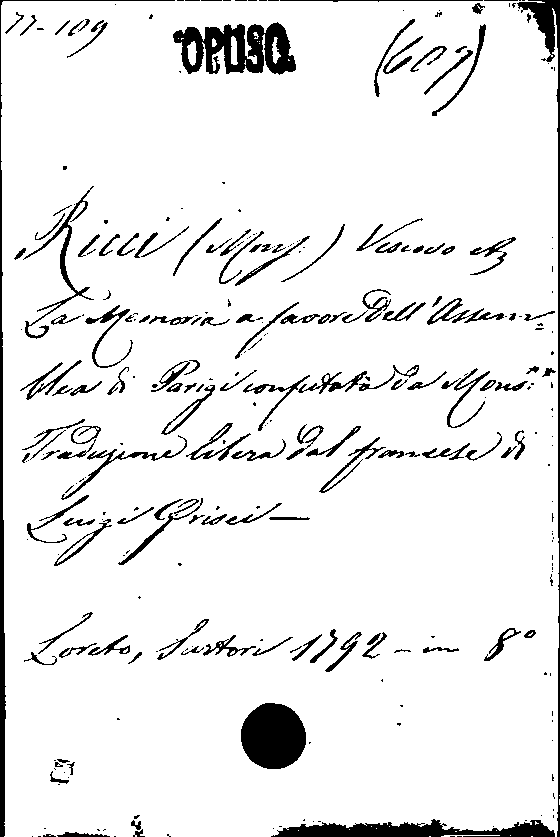 77-109
OPUSC.
(607)
Ricci (Mons.) Vescovo &
La Memoria a favore Dell'Assem-
blea di Parigi confutata da Mons.r *
Traduzione libera dal francese di
Luigi Grisei —
Loreto, Sartori 1792 - in 8°